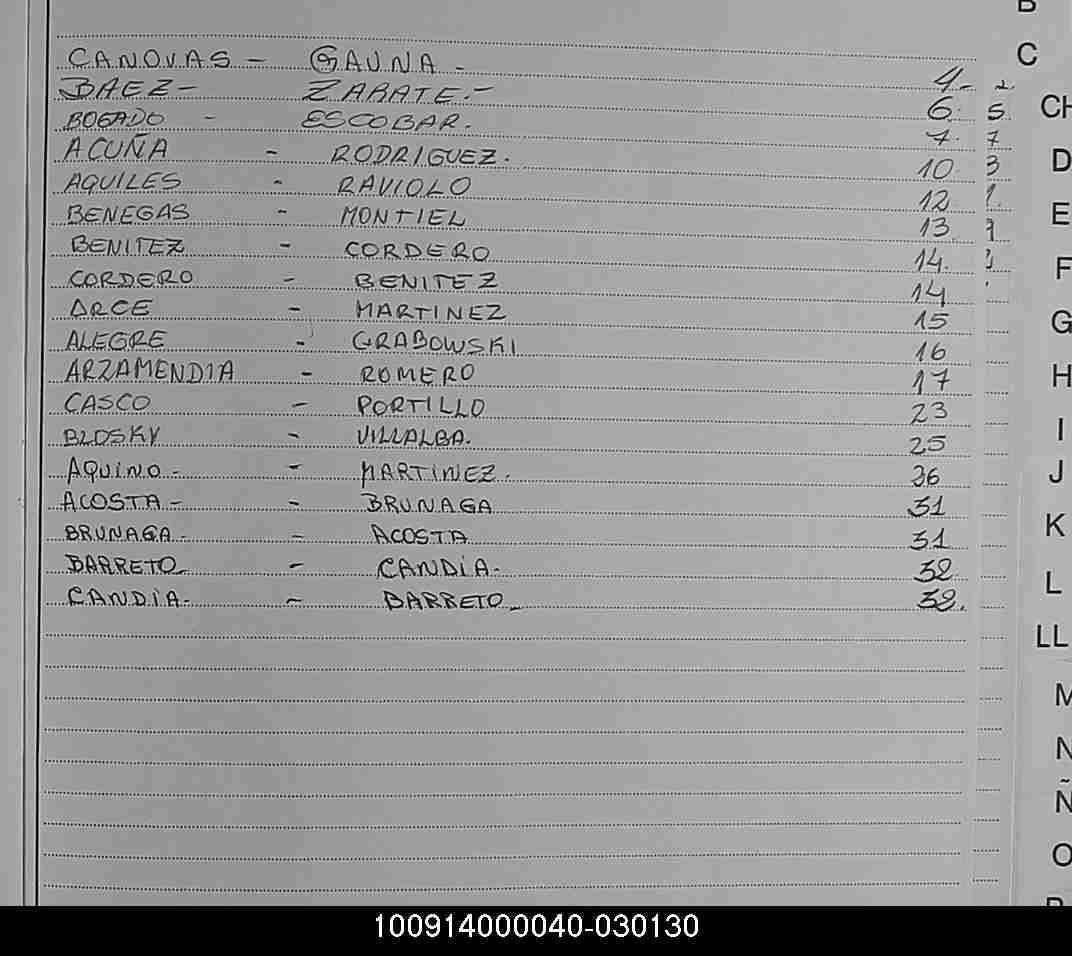 CANOVAS - GAUNA - 4-
BAEZ - ZARATE.- 6.
BOGADO - ESCOBAR. 7.
ACUÑA - RODRIGUEZ. 10.
AQUILES - RAVIOLO 12
BENEGAS - MONTIEL 13
BENITEZ - CORDERO 14.
CORDERO - BENITEZ 14
ARCE - MARTINEZ 15
ALEGRE - GRABOWSKI 16
ARZAMENDIA - ROMERO 17
CASCO - PORTILLO 23
VILLALBA. 25
AQUINO - - MARTINEZ.
ACOSTA - - BRUNAGA 31
BRUNAGA - - ACOSTA 31
BARRETO - CANDIA- 32
CANDIA- - BARRETO 32.
5
7
3
B
C
CH
D
E
F
G
H
I
J
K
L
LL
M
N
Ñ
O
100914000040-030130